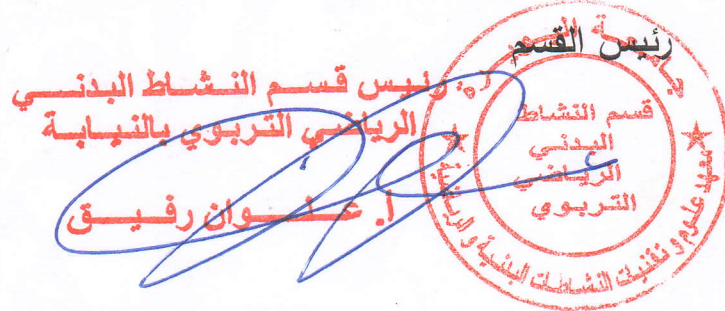 رئيس القسم
رئيس قسم النشاط البدني
الرياضي التربوي بالنيابة
أ. علوان رفيق
جامعة
قسم النشاط
البدني
الرياضي
التربوي
معهد علوم و تقنيات النشاطات البدنية و الرياضية